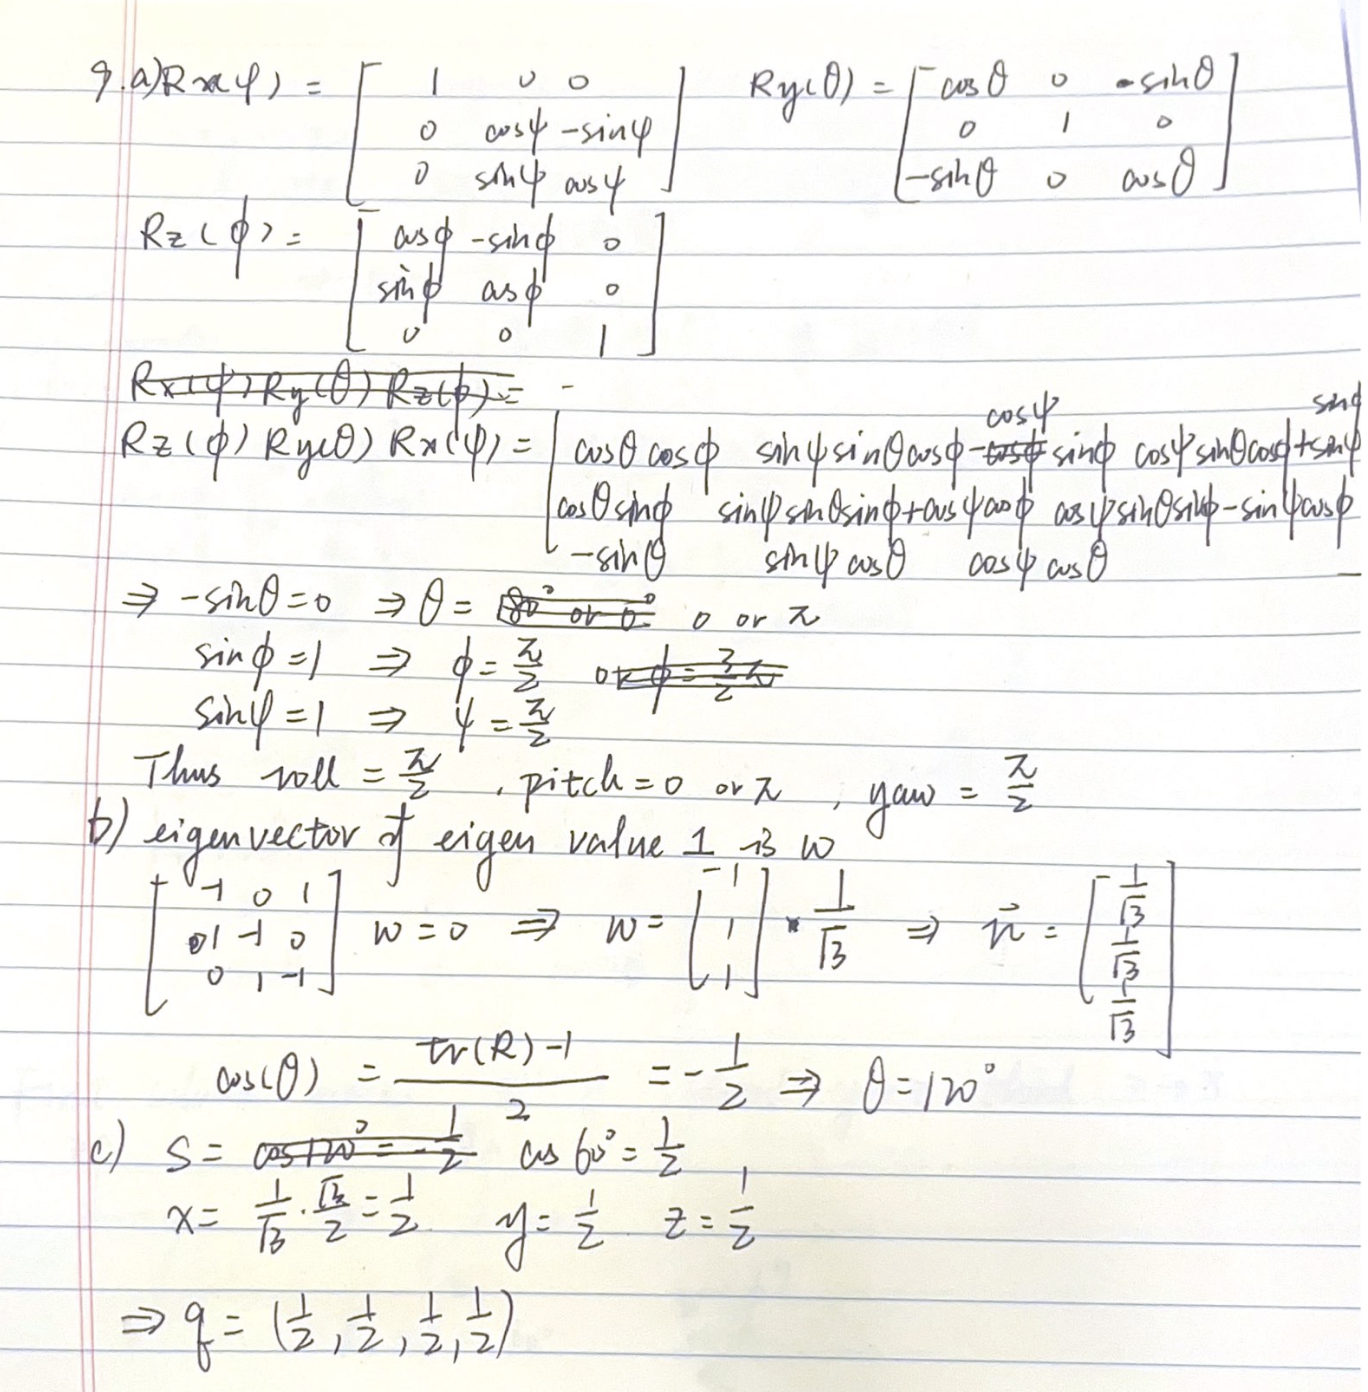 9.a) Rx(ψ) = [ 1 0 0   Ry(θ) = [ cosθ 0 -sinθ ]
0 cosψ -sinψ   0 1 0
0 sinψ cosψ ]   -sinθ 0 cosθ
Rz(ϕ) = [ cosϕ -sinϕ 0
sinϕ cosϕ 0
0 0 1 ]
Rx(ψ) Ry(θ) Rz(ϕ) = -
cosψ sinϕ
Rz(ϕ) Ry(θ) Rx(ψ) = [ cosθ cosϕ sinψ sinθ cosϕ - cosϕ sinϕ cosψ sinθ cosϕ + sinψ
cosθ sinϕ sinψ sinθ sinϕ + cosψ cosϕ cosψ sinθ sinϕ - sinψ cosϕ
-sinθ sinψ cosθ cosψ cosθ
⇒ -sinθ = 0 ⇒ θ = 180° or 0° 0 or π
sinϕ = 1 ⇒ ϕ = π/2 or ϕ = 3/2 π
sinψ = 1 ⇒ ψ = π/2
Thus roll = π/2 , pitch = 0 or π , yaw = π/2
b) eigenvector of eigen value 1 is w
[ -1 0 1
1 -1 0 ] w = 0 ⇒ w = [ 1 1 1 ] * 1/√3 ⇒ n⃗ = [ 1/√3 1/√3 1/√3 ]
0 1 -1
cos(θ) = (tr(R) - 1)/2 = -1/2 ⇒ θ = 120°
c) S = cos120° = -1/2 cos 60° = 1/2 ,
x = 1/√3 · √3/2 = 1/2 y = 1/2 z = 1/2
⇒ q = (1/2, 1/2, 1/2, 1/2)